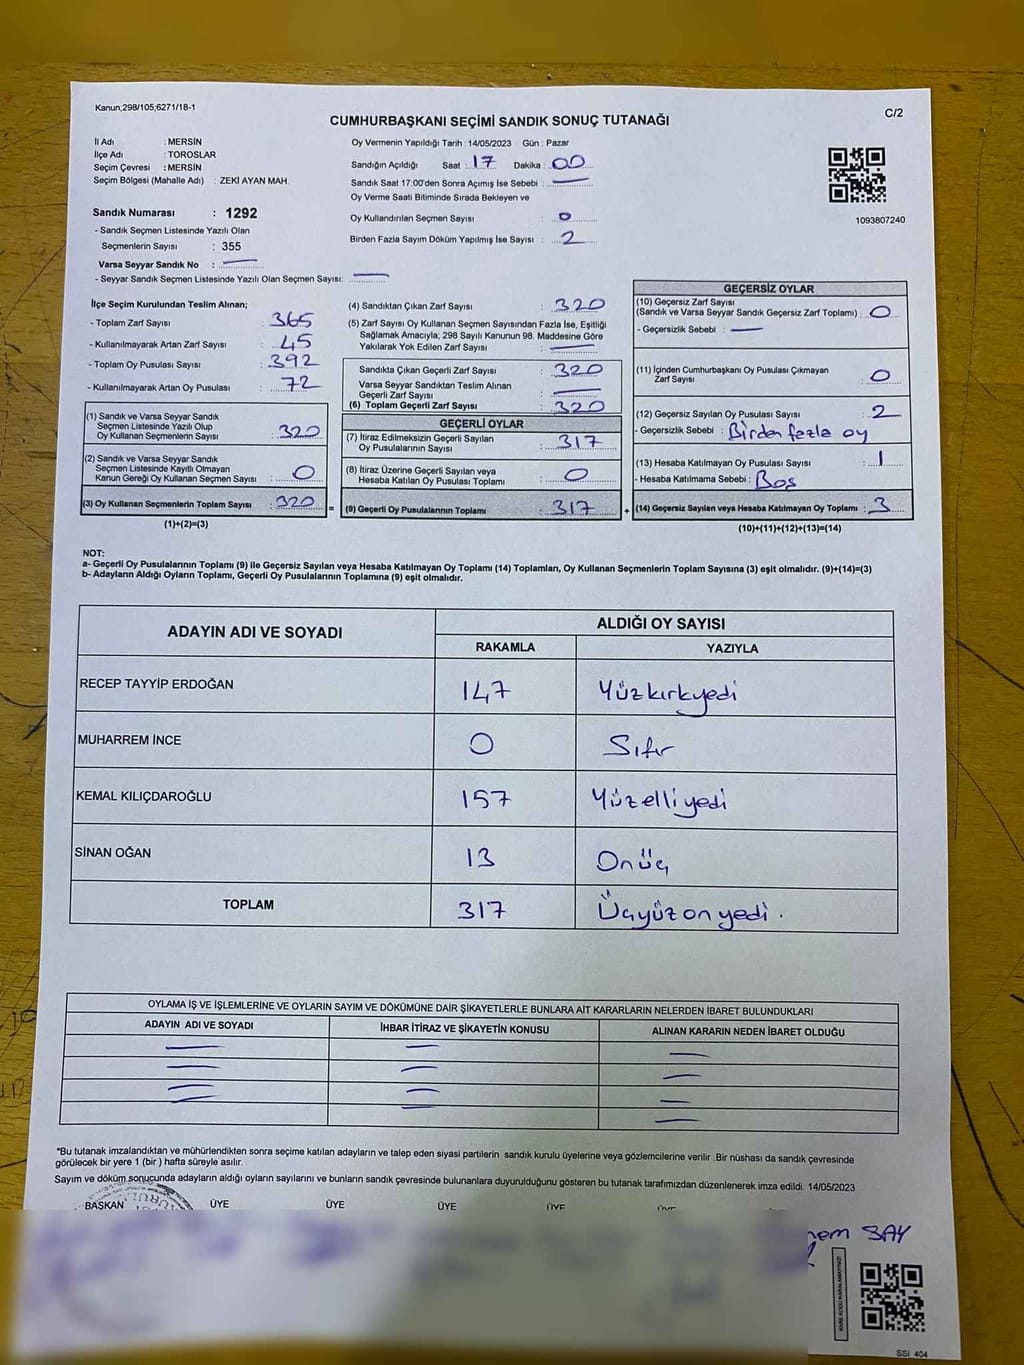 Kanun;298/105;6271/18-1
C/2
CUMHURBAŞKANI SEÇİMİ SANDIK SONUÇ TUTANAĞI
İl Adı : MERSİN
İlçe Adı : TOROSLAR
Seçim Çevresi : MERSİN
Seçim Bölgesi (Mahalle Adı) : ZEKİ AYAN MAH.
Sandık Numarası : 1292
- Sandık Seçmen Listesinde Yazılı Olan
Seçmenlerin Sayısı : 355
Varsa Seyyar Sandık No : —
- Seyyar Sandık Seçmen Listesinde Yazılı Olan Seçmen Sayısı: —
Oy Vermenin Yapıldığı Tarih : 14/05/2023 Gün : Pazar
Sandığın Açıldığı Saat : 17 Dakika : 00
Sandık Saat 17:00'den Sonra Açımış İse Sebebi : —
Oy Verme Saati Bitiminde Sırada Bekleyen ve
Oy Kullandırılan Seçmen Sayısı : 0
Birden Fazla Sayım Döküm Yapılmış İse Sayısı : 2
1093807240
İlçe Seçim Kurulundan Teslim Alınan;
- Toplam Zarf Sayısı : 365
- Kullanılmayarak Artan Zarf Sayısı : 45
- Toplam Oy Pusulası Sayısı : 392
- Kullanılmayarak Artan Oy Pusulası : 72
(1) Sandık ve Varsa Seyyar Sandık
Seçmen Listesinde Yazılı Olup
Oy Kullanan Seçmenlerin Sayısı : 320
(2) Sandık ve Varsa Seyyar Sandık
Seçmen Listesinde Kayıtlı Olmayan
Kanun Gereği Oy Kullanan Seçmen Sayısı : 0
(3) Oy Kullanan Seçmenlerin Toplam Sayısı : 320 =
(1)+(2)=(3)
(4) Sandıktan Çıkan Zarf Sayısı : 320
(5) Zarf Sayısı Oy Kullanan Seçmen Sayısından Fazla İse, Eşitliği
Sağlamak Amacıyla, 298 Sayılı Kanunun 98. Maddesine Göre
Yakılarak Yok Edilen Zarf Sayısı : —
Sandıkta Çıkan Geçerli Zarf Sayısı : 320
Varsa Seyyar Sandıktan Teslim Alınan
Geçerli Zarf Sayısı : —
(6) Toplam Geçerli Zarf Sayısı : 320
GEÇERLİ OYLAR
(7) İtiraz Edilmeksizin Geçerli Sayılan
Oy Pusulalarının Sayısı : 317
(8) İtiraz Üzerine Geçerli Sayılan veya
Hesaba Katılan Oy Pusulası Toplamı : 0
(9) Geçerli Oy Pusulalarının Toplamı : 317 +
GEÇERSİZ OYLAR
(10) Geçersiz Zarf Sayısı
(Sandık ve Varsa Seyyar Sandık Geçersiz Zarf Toplamı) : 0
- Geçersizlik Sebebi : —
(11) İçinden Cumhurbaşkanı Oy Pusulası Çıkmayan
Zarf Sayısı : 0
(12) Geçersiz Sayılan Oy Pusulası Sayısı : 2
- Geçersizlik Sebebi : Birden fazla oy
(13) Hesaba Katılmayan Oy Pusulası Sayısı : 1
- Hesaba Katılmama Sebebi : Boş
(14) Geçersiz Sayılan veya Hesaba Katılmayan Oy Toplamı : 3
(10)+(11)+(12)+(13)=(14)
NOT:
a- Geçerli Oy Pusulalarının Toplamı (9) ile Geçersiz Sayılan veya Hesaba Katılmayan Oy Toplamı (14) Toplamları, Oy Kullanan Seçmenlerin Toplam Sayısına (3) eşit olmalıdır. (9)+(14)=(3)
b- Adayların Aldığı Oyların Toplamı, Geçerli Oy Pusulalarının Toplamına (9) eşit olmalıdır.
ADAYIN ADI VE SOYADI ALDIĞI OY SAYISI
RAKAMLA YAZIYLA
RECEP TAYYİP ERDOĞAN 147 Yüzkırkyedi
MUHARREM İNCE 0 Sıfır
KEMAL KILIÇDAROĞLU 157 Yüzelliyedi
SİNAN OĞAN 13 Onüç
TOPLAM 317 Üçyüzonyedi.
OYLAMA İŞ VE İŞLEMLERİNE VE OYLARIN SAYIM VE DÖKÜMÜNE DAİR ŞİKAYETLERLE BUNLARA AİT KARARLARIN NELERDEN İBARET BULUNDUKLARI
ADAYIN ADI VE SOYADI İHBAR İTİRAZ VE ŞİKAYETİN KONUSU ALINAN KARARIN NEDEN İBARET OLDUĞU
*Bu tutanak imzalandıktan ve mühürlendikten sonra seçime katılan adayların ve talep eden siyasi partilerin sandık kurulu üyelerine veya gözlemcilerine verilir .Bir nüshası da sandık çevresinde
görülecek bir yere 1 (bir ) hafta süreyle asılır.
Sayım ve döküm sonucunda adayların aldığı oyların sayılarını ve bunların sandık çevresinde bulunanlara duyurulduğunu gösteren bu tutanak tarafımızdan düzenlenerek imza edildi. 14/05/2023
BAŞKAN ÜYE ÜYE ÜYE ÜYE ÜYE
SAY
SSI 404